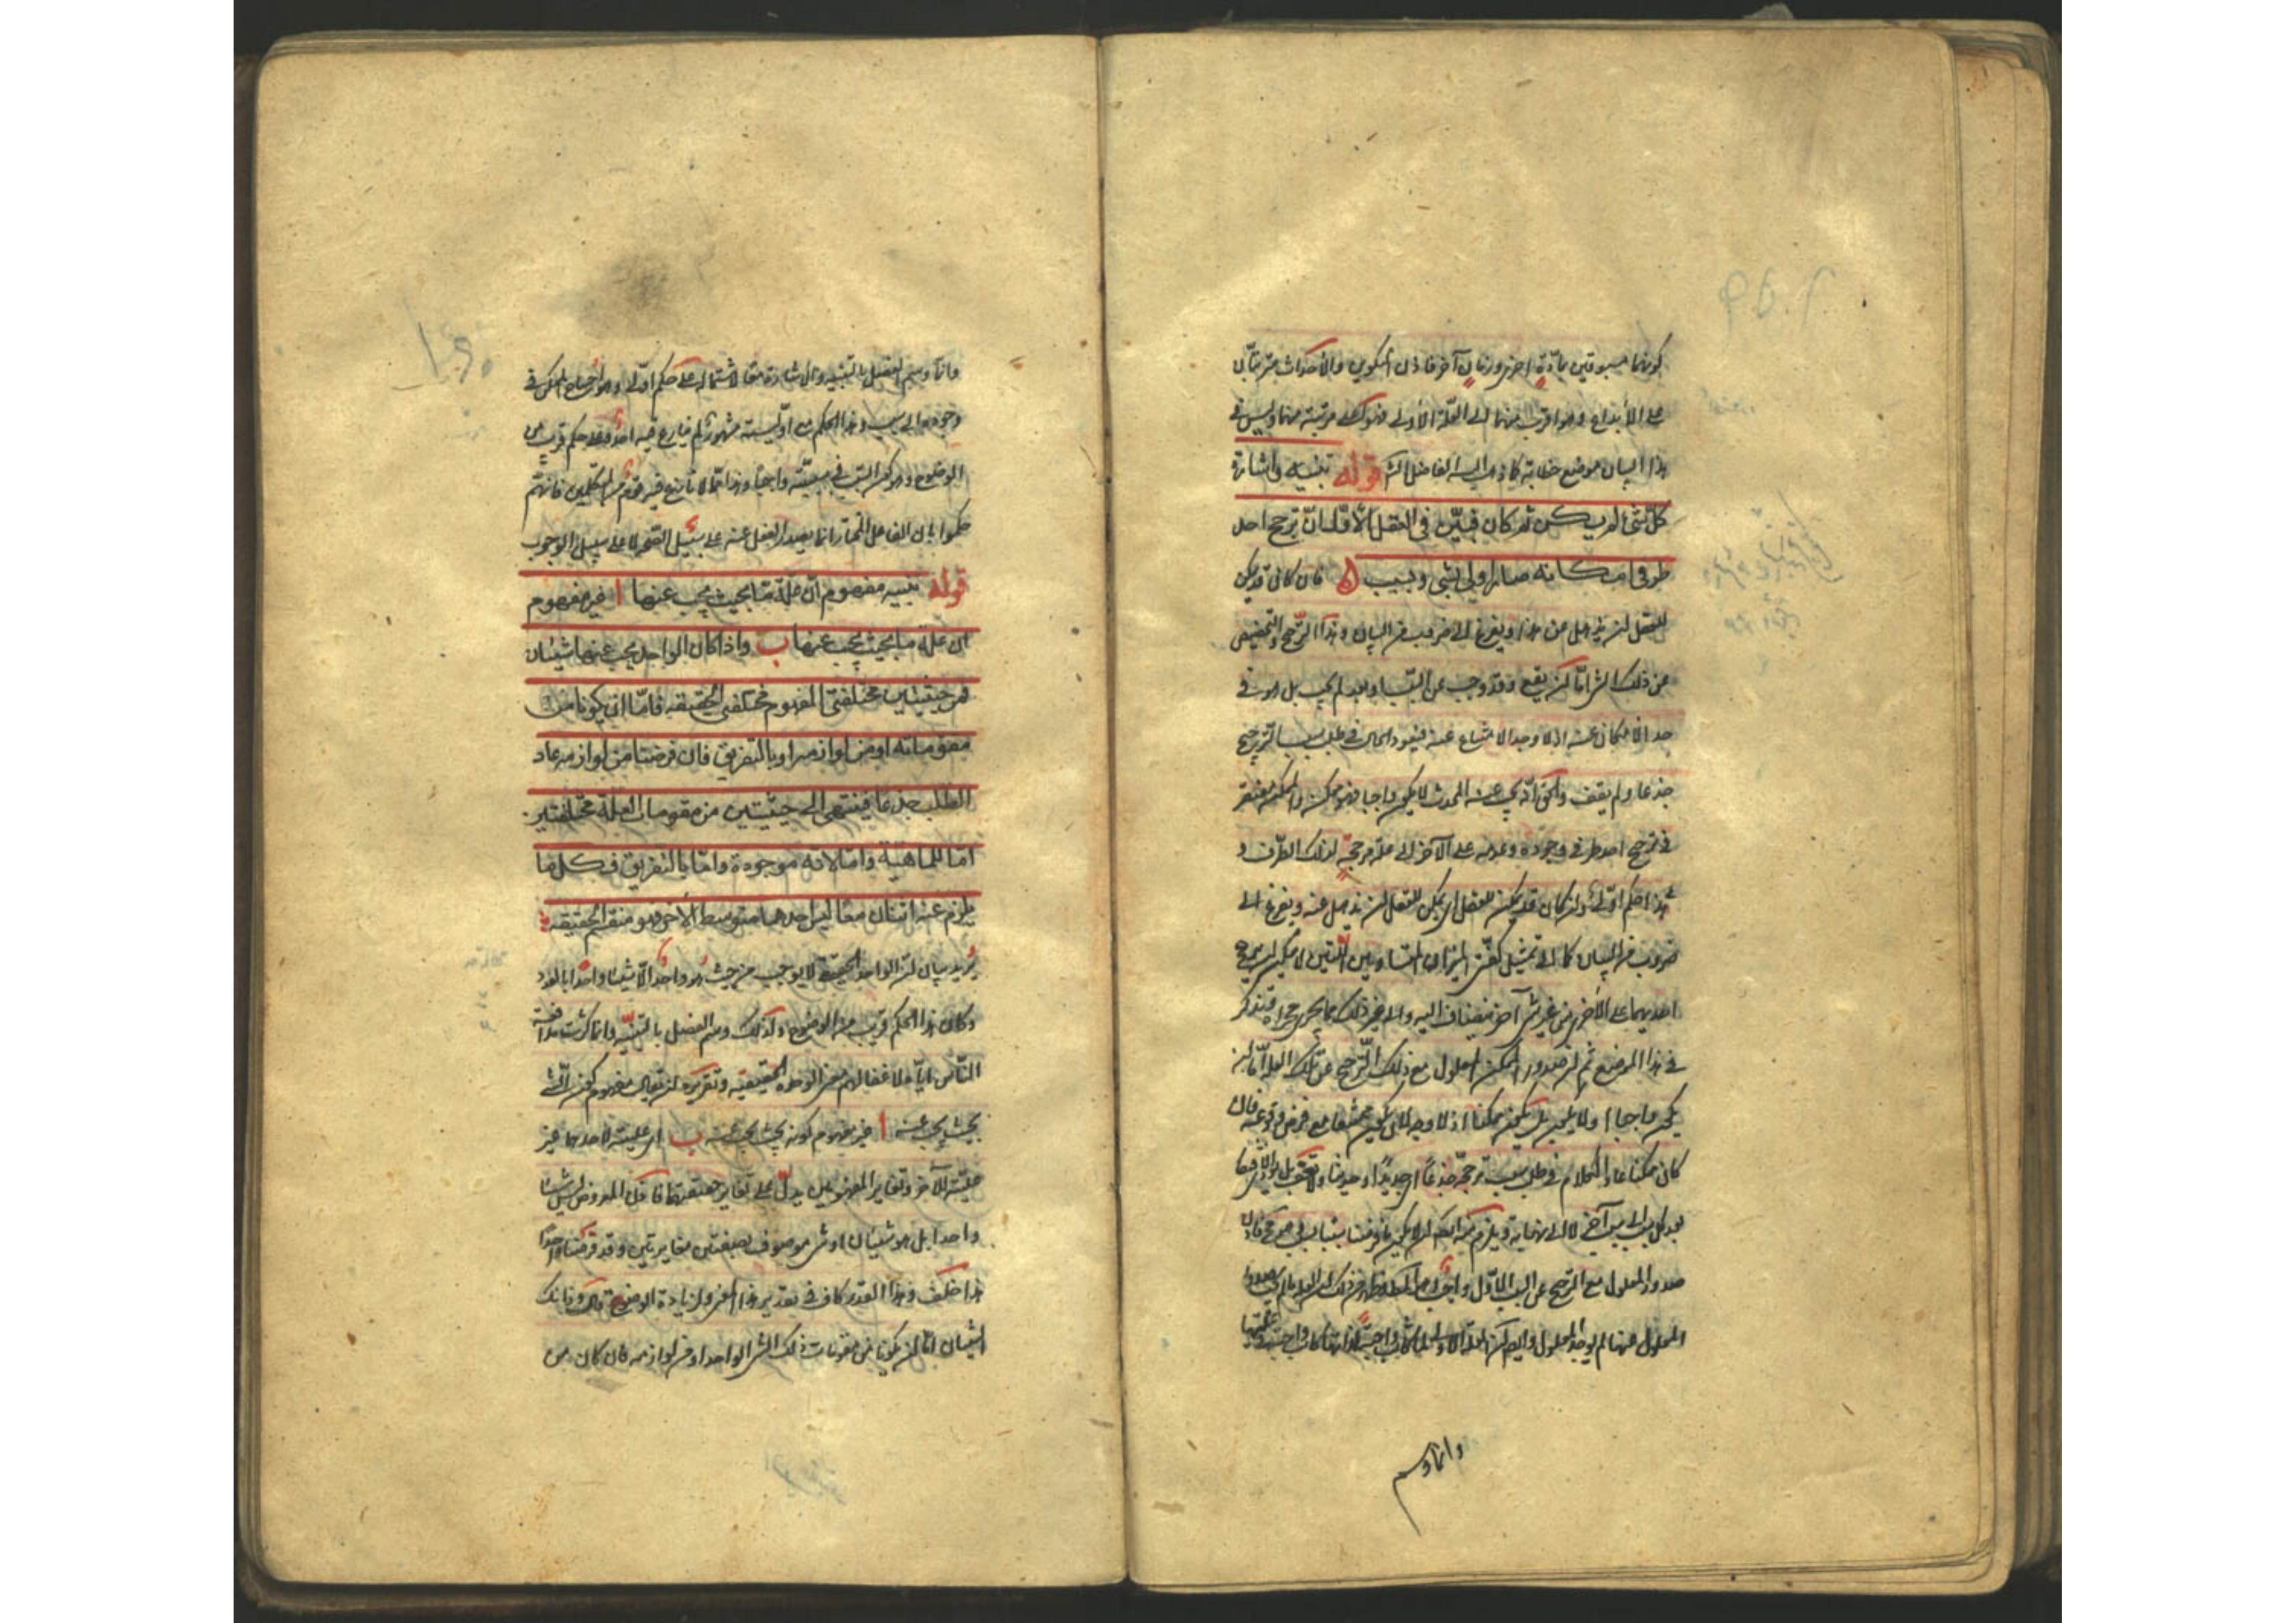 كونهما مسبوقين بمادة اخرى وزمان آخر فاذن التكوين والاحداث مترتبان
على الابداع وهو اقرب منهما الى العلة الأولى فهو اعلى مرتبة منهما وليس في
هذا البيان موضع خطابة كما ذهب اليه الفاضل الشارح قوله تنبيه واشارة
كل شئ لم يكن ثم كان فبيّن فى العقل الأوّل ان ترجح احد
طرفى امكانه صار اولى بشئ وبسبب وان كان قد يمكن
للعقل ان يذهل عن هذا ويفزع الى ضروب من البيان وهذا الترجيح والتخصيص
عن ذلك الشئ اما ان يقع وقد وجب عن السبب او بعد لم يجب بل هو فى
حد الامكان عنه اذ لا وجه للامتناع عنه فيعود الحال فى طلب سبب الترجيح
جذعا ولم يقف والحق انه يجب عنه المحدث لا يكون واجبا فهو ممكن والممكن يفتقر
فى ترجح احد طرفى وجوده وعدمه على الآخر الى علة مرجحة لذلك الطرف و
هذا حكم اوّلى وان كان قد يمكن للعقل ان يمكن للعقل ان يذهل عنه ويفزع الى
ضروب من البيان كما الى تمثيل كفتى الميزان المتساويتين اللتين لا يمكن ان يترجح
احديهما على الأخرى من غير شئ آخر ينضاف اليه والى غير ذلك مما يجرى مجراه فيتذكر
فى هذا الموضع ثم ان صدور الممكن المعلول مع ذلك الترجح عن تلك العلة اما ان
يكون واجبا او لا يكون بل يكون ممكنا اذ لا وجه لان يكون ممتنعا مع فرض وقوعه فان
كان ممكنا عاد الكلام فى طلب سبب ترجحه جذعا اى جديدا او حديثا
بعد كل سبب الى سبب آخر لا الى نهاية ويلزم منه ان لا يكون ما فرضناه سببا بسبب
صدور المعلول مع الترجح عن السبب الاول واجب
المعلول عنها لم يوجد المعلول
وانما وسم
وانما وسم الفصل بالتنبيه والاشارة معا لاشتماله على حكم اوّلى وهو احتياج الممكن فى
وجوده الى سبب وهذا الحكم مع اوليته مشهور لم ينازع فيه احد وعلى حكم قريب من
الوضوح وهو كون السبب فى سببيته واجبا وهذا مما لا ينازع فيه قوم من المتكلمين فانهم
حكموا بان الفاعل المختار انما يصدر الفعل عنه على سبيل الصحة لا على سبيل الوجوب
قوله تنبيه مفهوم ان علة ما بحيث يجب عنها ا غير مفهوم
ان علة ما بحيث يجب عنها ب واذا كان الواحد يجب عنها شيئان
فمن حيثيتين مختلفتى المفهوم مختلفتى الحقيقة فاما ان يكونا من
مقوماته او من لوازمه او بالتفريق فان فرضتا من لوازمه عاد
الطلب جذعا فينتهى الى حيثيتين من مقومات العلة مختلفتين
امّا للماهيّة وامّا لانه موجودة وامّا بالتفريق فكل ما
يلزم عنه اثنان معا ليس احدهما متوسط الآخر فهو منقسم الحقيقة
يريد بيان ان الواحد الحقيقى لا يوجب من حيث هو واحد الا شيئا واحدا بالعدد
وكان هذا الحكم قريب من الوضوح ولذلك وسم الفصل بالتنبيه وانما كثرت مدافعة
النّاس اياه لاغفالهم معنى الوحدة الحقيقية وتقريره ان يقال مفهوم كون الشئ
بحيث يجب عنه ا غير مفهوم كونه بحيث يجب عنه ب اى عليته لاحدهما غير
عليته للآخر وتغاير المفهومين يدلّ على تغاير حقيقتهما فاذن المفروض ليس شيئا
واحدا بل هو شيئان او شئ موصوف بصفتين متغايرتين وقد فرضناه واحدا
هذا خلف وهذا القدر كاف فى تقدير هذا المعنى ولزيادة الوضوح قال وذانك
الشيئان اما ان يكونا من مقومات ذلك الشئ الواحد او من لوازمه فان كان من